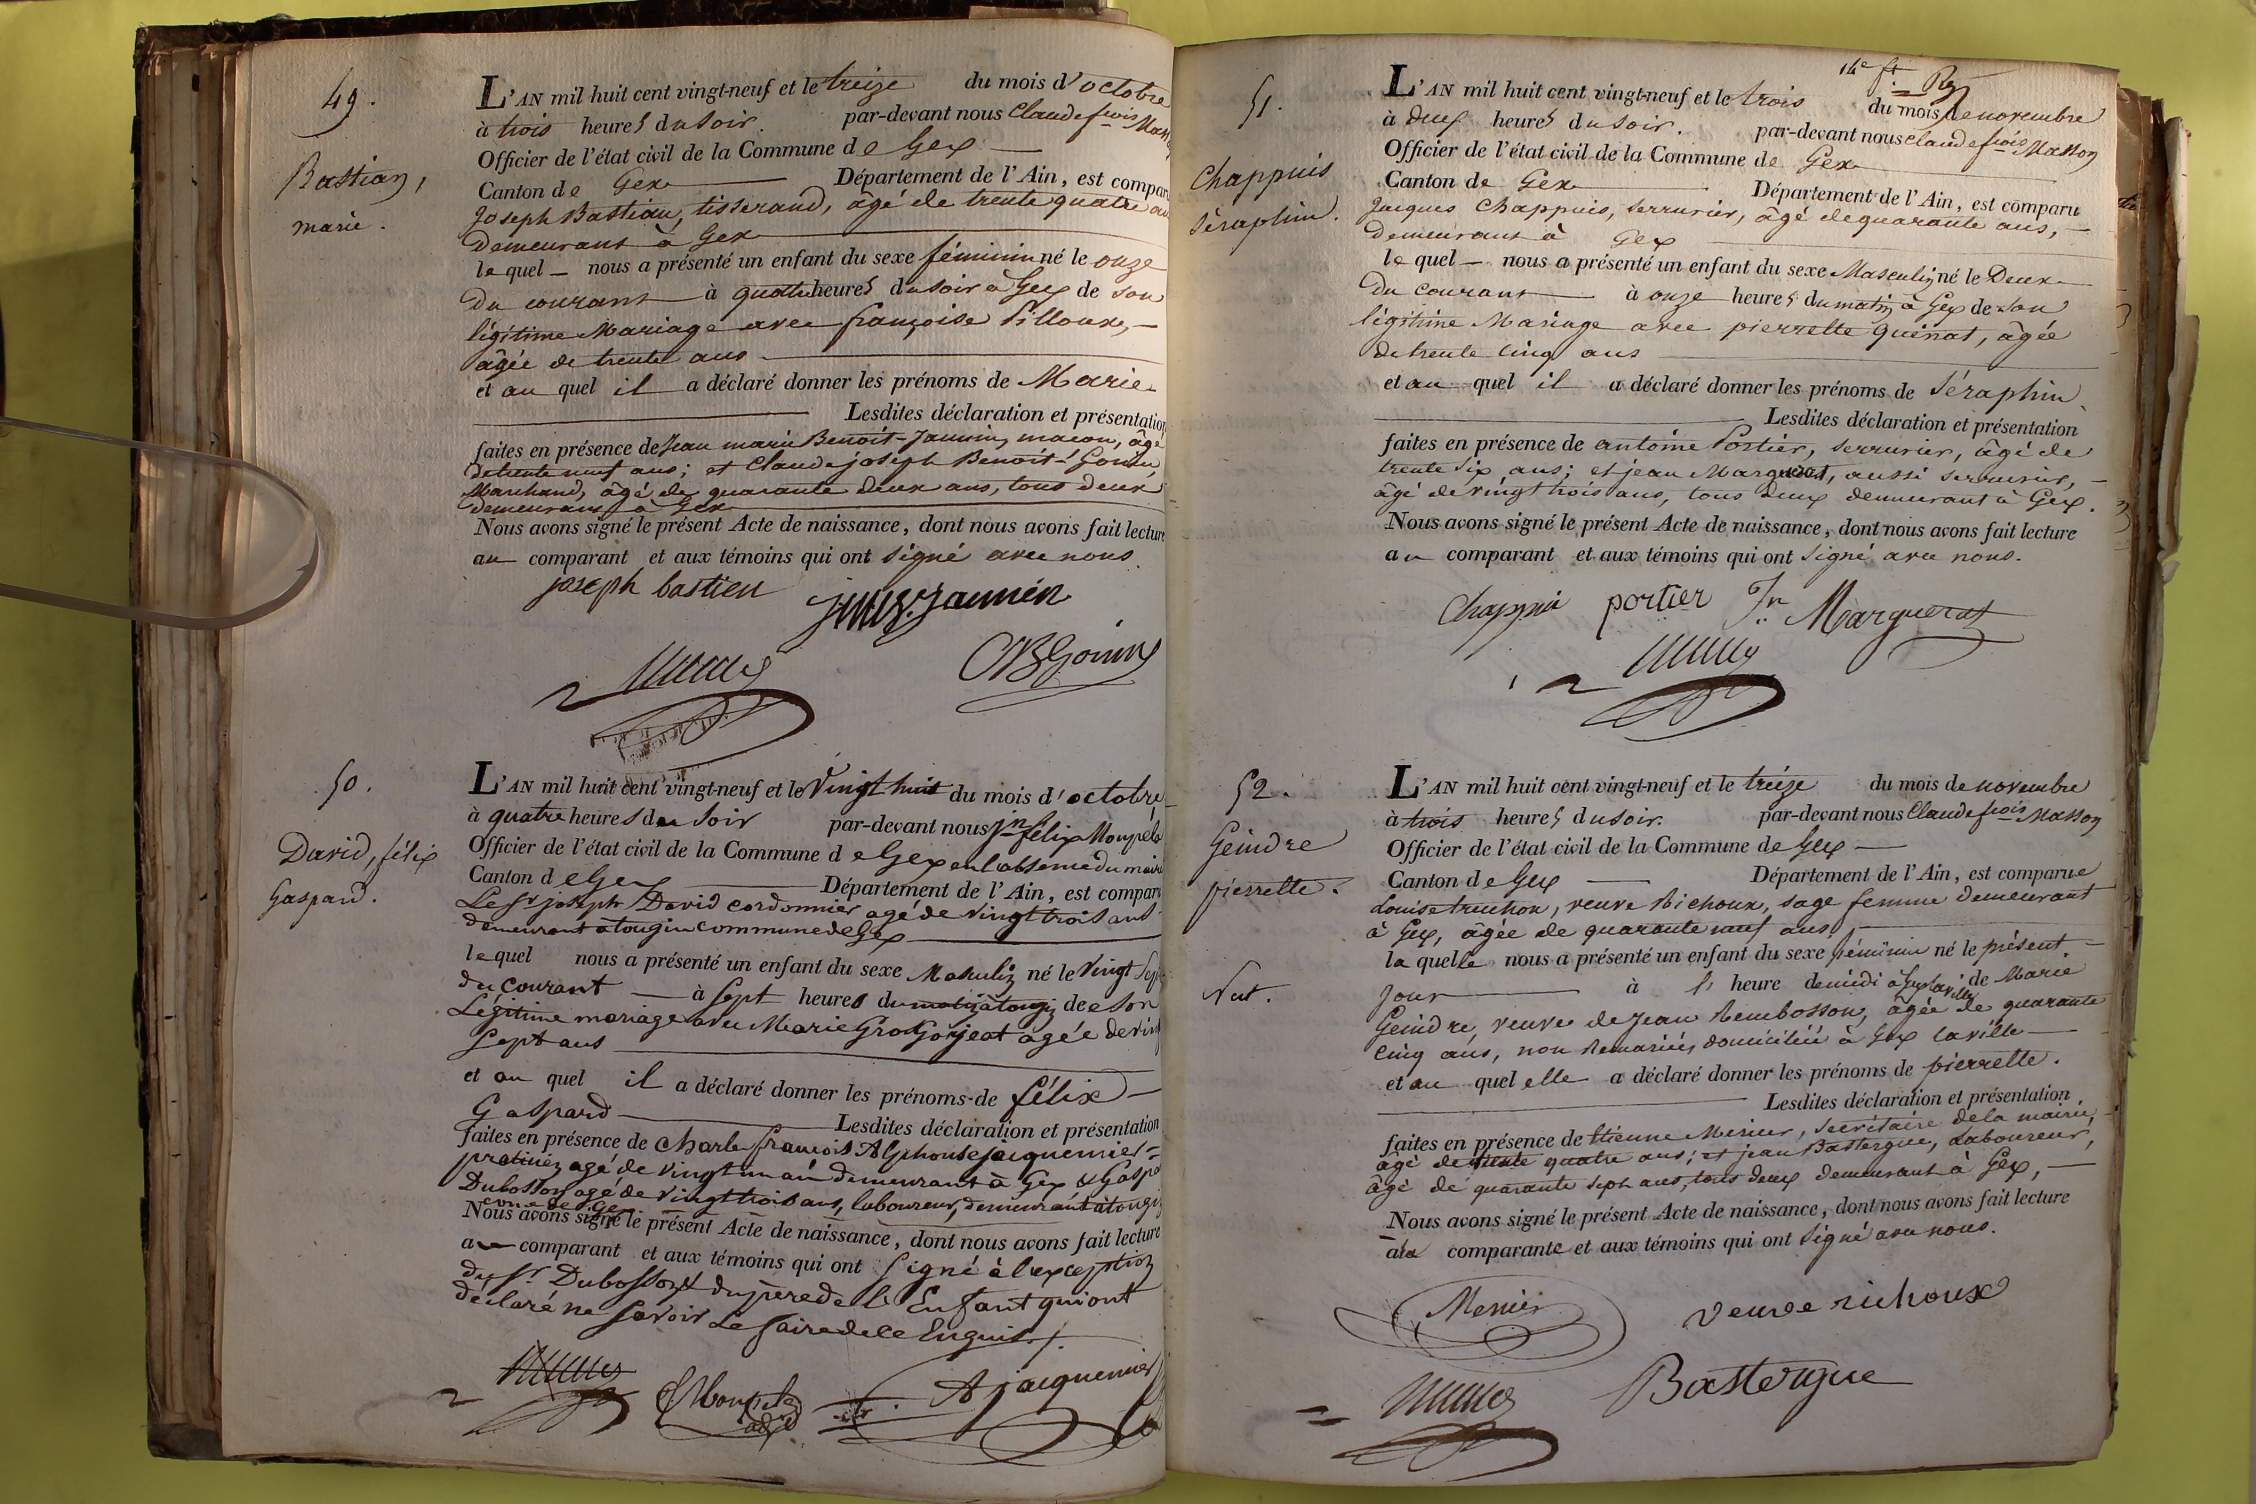 49.
Bastian,
marie.
L'AN mil huit cent vingt-neuf et le treize du mois d'octobre
à trois heures du soir. par-devant nous Claude fçois Masson
Officier de l'état civil de la Commune de Gex
Canton de Gex Département de l'Ain, est comparu
Joseph Bastian, tisserand, âgé de trente quatre ans
demeurant à Gex
lequel nous a présenté un enfant du sexe féminin né le onze
du courant à quatre heures du soir à Gex de son
légitime Mariage avec françoise Pilloux,
âgée de trente ans
et au quel il a déclaré donner les prénoms de Marie
Lesdites déclaration et présentation
faites en présence de Jean marie Benoit-Jannin, macon, âgé
de trente neuf ans; et Claude joseph Benoit-Gonin,
Marchand, âgé de quarante deux ans, tous deux
demeurant à Gex
Nous avons signé le présent Acte de naissance, dont nous avons fait lecture
au comparant et aux témoins qui ont signé avec nous.
joseph bastien
Jannin
50.
David, félix
Gaspard.
L'AN mil huit cent vingt-neuf et le Vingt huit du mois d'octobre
à quatre heures du soir par-devant nous Jn félix Moupela
Officier de l'état civil de la Commune de Gex en l'absence du maire
Canton de Gex Département de l'Ain, est comparu
Le Sr joseph David cordonnier agé de vingt trois ans
demeurant a tougin commune de Gex
lequel nous a présenté un enfant du sexe Masculin né le vingt Sept
du courant à Sept heures du matin à tougin de son
Légitime mariage avec Marie Grosgorjeat agée de vingt
Sept ans
et au quel il a déclaré donner les prénoms de félix
Gaspard Lesdites déclaration et présentation
faites en présence de Charle françois Alphonse jacquemier
praticien agé de vingt un an demeurant à Gex & Gaspard
Dubosson agé de vingt trois ans, laboureur, demeurant à tougin
cne de Gex
Nous avons signé le présent Acte de naissance, dont nous avons fait lecture
au comparant et aux témoins qui ont Signé à l'exception
du Sr Dubosson & du pere de l'Enfant qui ont
déclaré ne savoir Le faire de ce Enquis ./.
Moupela
adjt
A jacquemier
51.
Chappuis
Séraphin.
L'AN mil huit cent vingt-neuf et le trois du mois de novembre
à deux heures du soir. par-devant nous Claude fçois Masson
Officier de l'état civil de la Commune de Gex
Canton de Gex Département de l'Ain, est comparu
Jacques Chappuis, serrurier, âgé de quarante ans,
demeurant à Gex
lequel nous a présenté un enfant du sexe Masculin né le Deux
du courant à onze heures du matin à Gex de son
légitime Mariage avec pierrette Quinat, âgée
de trente cinq ans
et au quel il a déclaré donner les prénoms de Séraphin
Lesdites déclaration et présentation
faites en présence de antoine Portier, serrurier, âgé de
trente six ans; et jean Marguerat, aussi serrurier,
âgé de vingt trois ans, tous deux demeurant à Gex.
Nous avons signé le présent Acte de naissance, dont nous avons fait lecture
au comparant et aux témoins qui ont signé avec nous.
Chappui portier Jn Marguerat
52.
Geindre
pierrette.
Nat.
L'AN mil huit cent vingt-neuf et le treize du mois de novembre
à trois heures du soir. par-devant nous Claude fçois Masson
Officier de l'état civil de la Commune de Gex
Canton de Gex Département de l'Ain, est comparue
Louise truchon, veuve Richoux, sage femme demeurant
à Gex, âgée de quarante neuf ans,
laquelle nous a présenté un enfant du sexe féminin né le présent
jour à l' heure de midi à Gex la ville de Marie
Geindre, veuve de Jean Rembosson, âgée de quarante
cinq ans, non Remariée, domiciliée à Gex la ville
et au quel elle a déclaré donner les prénoms de pierrette.
Lesdites déclaration et présentation
faites en présence de Etienne Menier, secrétaire de la mairie,
âgé de trente quatre ans; et jean Bastergue, Laboureur,
âgé de quarante sept ans, tous deux demeurant à Gex,
Nous avons signé le présent Acte de naissance, dont nous avons fait lecture
à la comparante et aux témoins qui ont signé avec nous.
Menier veuve richoux
Bastergue